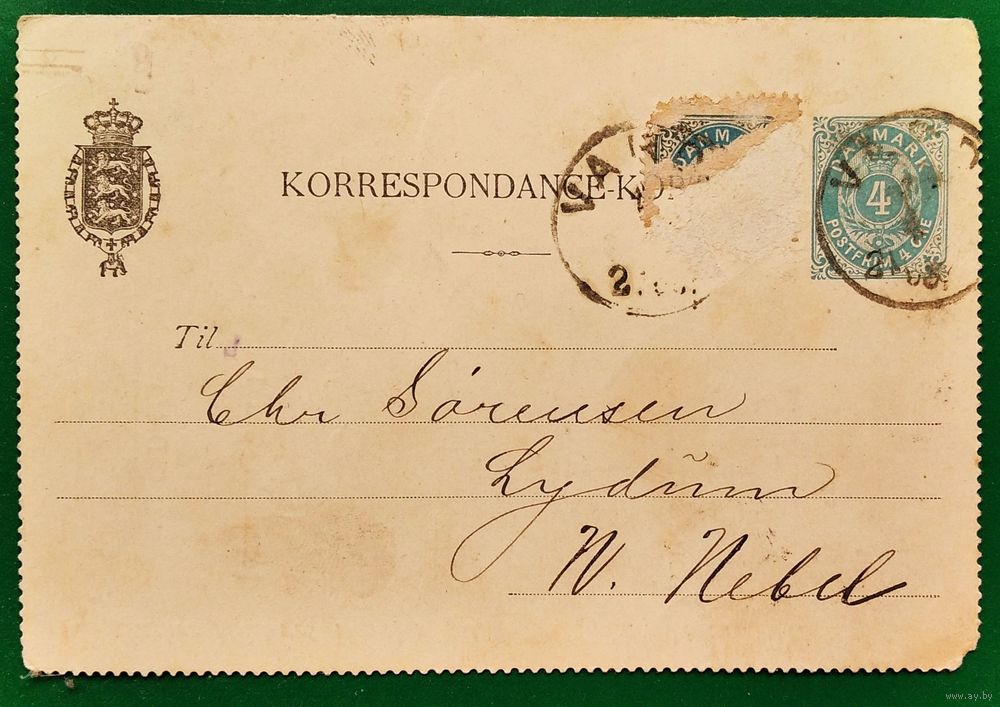 KORRESPONDANCE-KOR
DANM
DANMARK
4
POSTFRIM. 4 ØRE
VA
V
Til
Chr Sörensen
Lydum
N. Nebel
www.ay.by